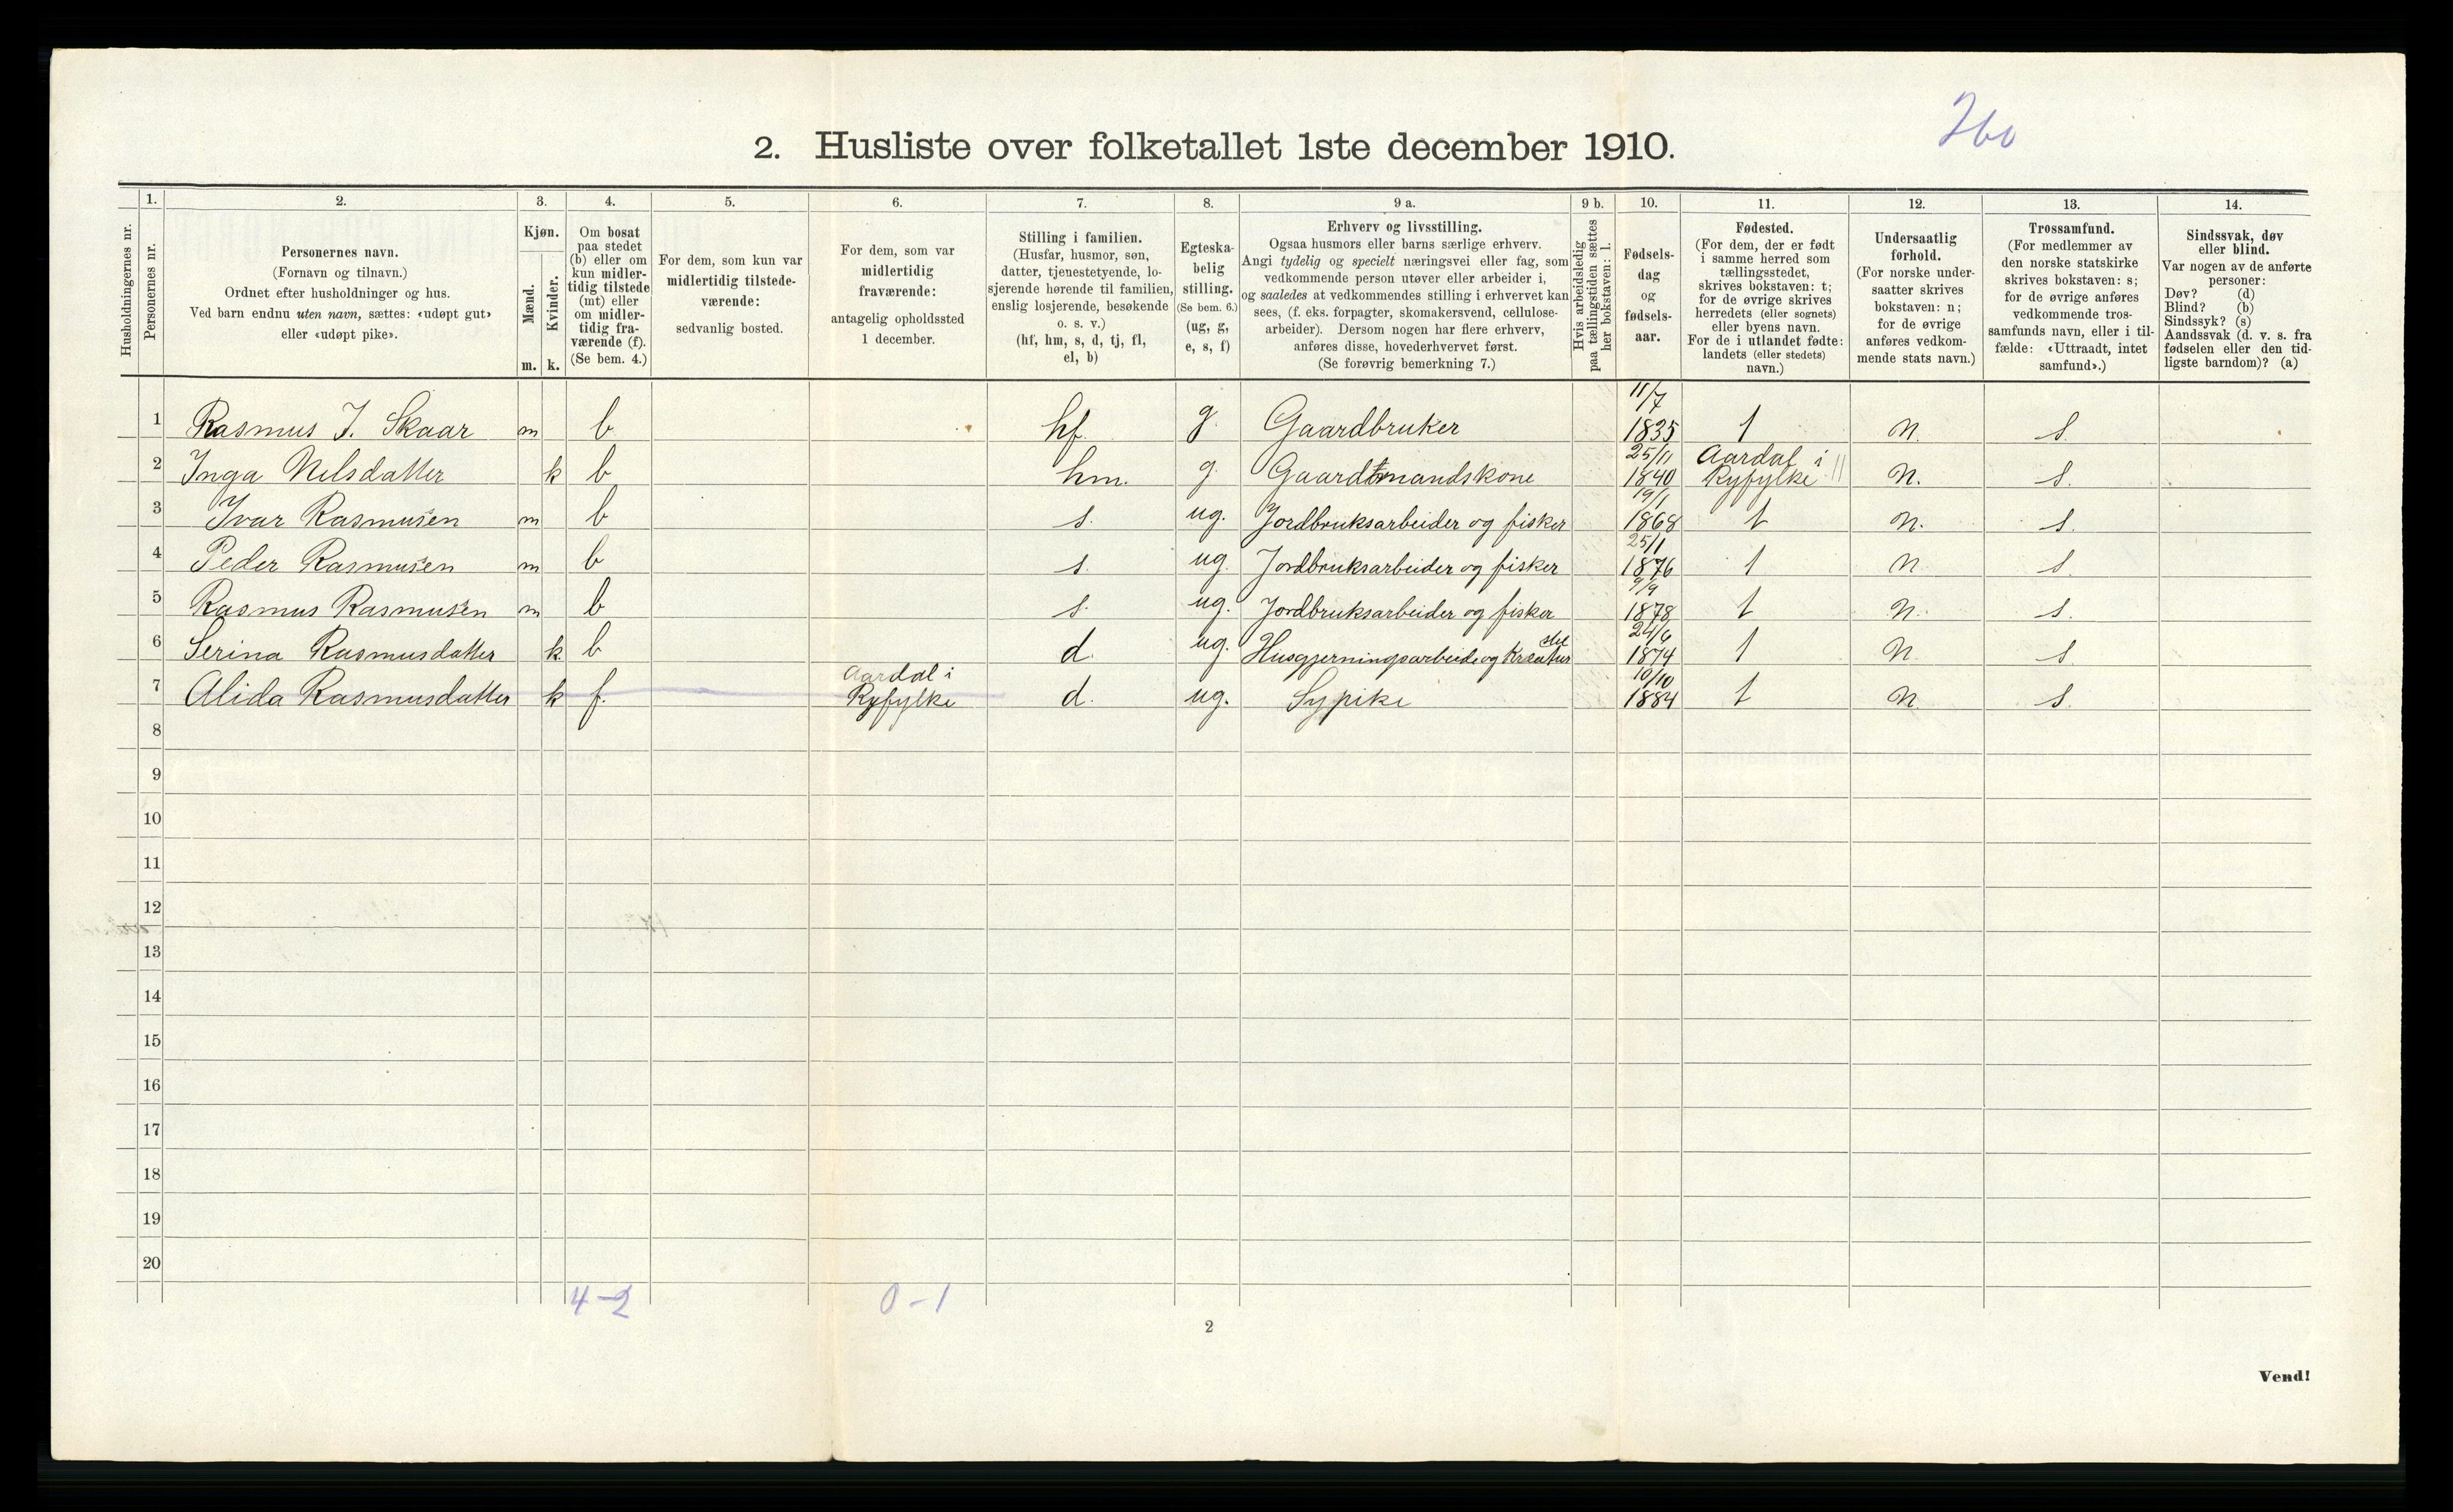 260
2. Husliste over folketallet 1ste december 1910.
Husholdningernes nr.
1.
Personernes nr.
2.
Personernes navn.
(Fornavn og tilnavn.)
Ordnet efter husholdninger og hus.
Ved barn endnu uten navn, sættes: «udøpt gut»
eller «udøpt pike».
3.
Kjøn.
Mænd.
Kvinder.
m. k.
4.
Om bosat
paa stedet
(b) eller om
kun midler-
tidig tilstede
(mt) eller
om midler-
tidig fra-
værende (f).
(Se bem. 4.)
5.
For dem, som kun var
midlertidig tilstede-
værende:
sedvanlig bosted.
6.
For dem, som var
midlertidig
fraværende:
antagelig opholdssted
1 december.
7.
Stilling i familien.
(Husfar, husmor, søn,
datter, tjenestetyende, lo-
sjerende hørende til familien,
enslig losjerende, besøkende
o. s. v.)
(hf, hm, s, d, tj, fl,
el, b)
8.
Egteska-
belig
stilling.
(Se bem. 6.)
(ug, g,
e, s, f)
9 a.
Erhverv og livsstilling.
Ogsaa husmors eller barns særlige erhverv.
Angi tydelig og specielt næringsvei eller fag, som
vedkommende person utøver eller arbeider i,
og saaledes at vedkommendes stilling i erhvervet kan
sees, (f. eks. forpagter, skomakersvend, cellulose-
arbeider). Dersom nogen har flere erhverv,
anføres disse, hovederhvervet først.
(Se forøvrig bemerkning 7.)
9 b.
Hvis arbeidsledig
paa tællingstiden sættes
her bokstaven: l.
10.
Fødsels-
dag
og
fødsels-
aar.
11.
Fødested.
(For dem, der er født
i samme herred som
tællingsstedet,
skrives bokstaven: t;
for de øvrige skrives
herredets (eller sognets)
eller byens navn.
For de i utlandet fødte:
landets (eller stedets)
navn.)
12.
Undersaatlig
forhold.
(For norske under-
saatter skrives
bokstaven: n;
for de øvrige
anføres vedkom-
mende stats navn.)
13.
Trossamfund.
(For medlemmer av
den norske statskirke
skrives bokstaven: s;
for de øvrige anføres
vedkommende tros-
samfunds navn, eller i til-
fælde: «Uttraadt, intet
samfund».)
14.
Sindssvak, døv
eller blind.
Var nogen av de anførte
personer:
Døv? (d)
Blind? (b)
Sindssyk? (s)
Aandssvak (d. v. s. fra
fødselen eller den tid-
ligste barndom)? (a)
1 Rasmus I. Skaar m b hf. g. Gaardbruker 11/7 1835 t n. s.
2 Inga Nilsdatter k b hm. g Gaardmandskone 25/11 1840 Aardal i Ryfylke n. s.
3 Ivar Rasmusen m b s. ug. Jordbruksarbeider og fisker 19/1 1868 t n. s.
4 Peder Rasmusen m b s. ug. Jordbruksarbeider og fisker 25/1 1876 t n s.
5 Rasmus Rasmusen m b s. ug. Jordbruksarbeider og fisker 9/9 1878 t n. s.
6 Serina Rasmusdatter k b d. ug. Husgjerningsarbeide og Kreaturstel 24/6 1874 t n s.
7 Alida Rasmusdatter k f. Aardal i Ryfylke d. ug. Sypike 10/10 1884 t n s.
8
9
10
11
12
13
14
15
16
17
18
19
20
4-2 0-1
2
Vend!